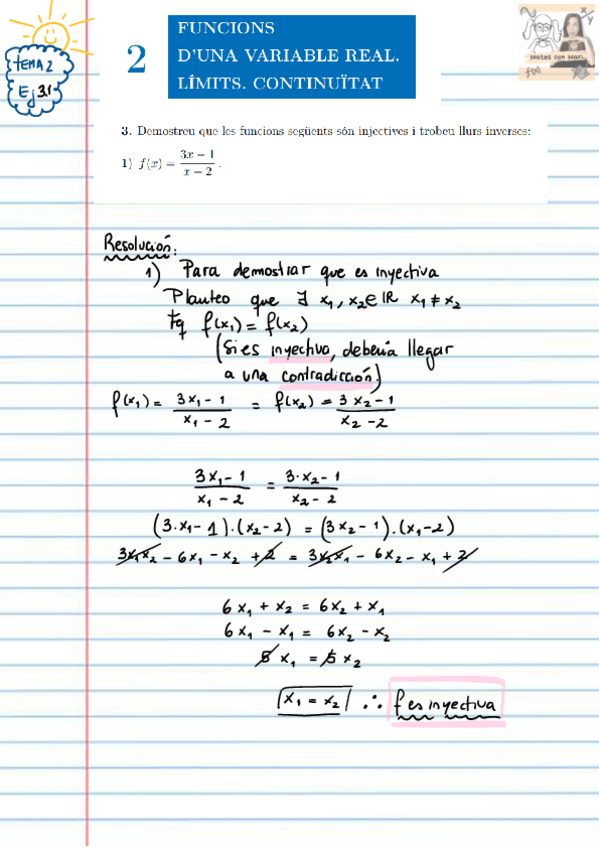 TEMA 2
Ej 3.1
2
FUNCIONS
D'UNA VARIABLE REAL.
LÍMITS. CONTINUÏTAT
Mates con Mari...
f(x)
3. Demostreu que les funcions següents són injectives i trobeu llurs inverses:
1) f(x) = (3x − 1)/(x − 2) .
Resolución:
1) Para demostrar que es inyectiva
Planteo que ∃ x₁, x₂ ∈ ℝ x₁ ≠ x₂
tq f(x₁) = f(x₂)
(Si es inyectiva, debería llegar
a una contradicción)
f(x₁) = (3x₁ − 1)/(x₁ − 2) = f(x₂) = (3x₂ − 1)/(x₂ − 2)
(3x₁ − 1)/(x₁ − 2) = (3·x₂ − 1)/(x₂ − 2)
(3·x₁ − 1)·(x₂ − 2) = (3x₂ − 1)·(x₁ − 2)
3x₁x₂ − 6x₁ − x₂ + 2 = 3x₂x₁ − 6x₂ − x₁ + 2
6x₁ + x₂ = 6x₂ + x₁
6x₁ − x₁ = 6x₂ − x₂
5x₁ = 5x₂
x₁ = x₂ ∴ f es inyectiva